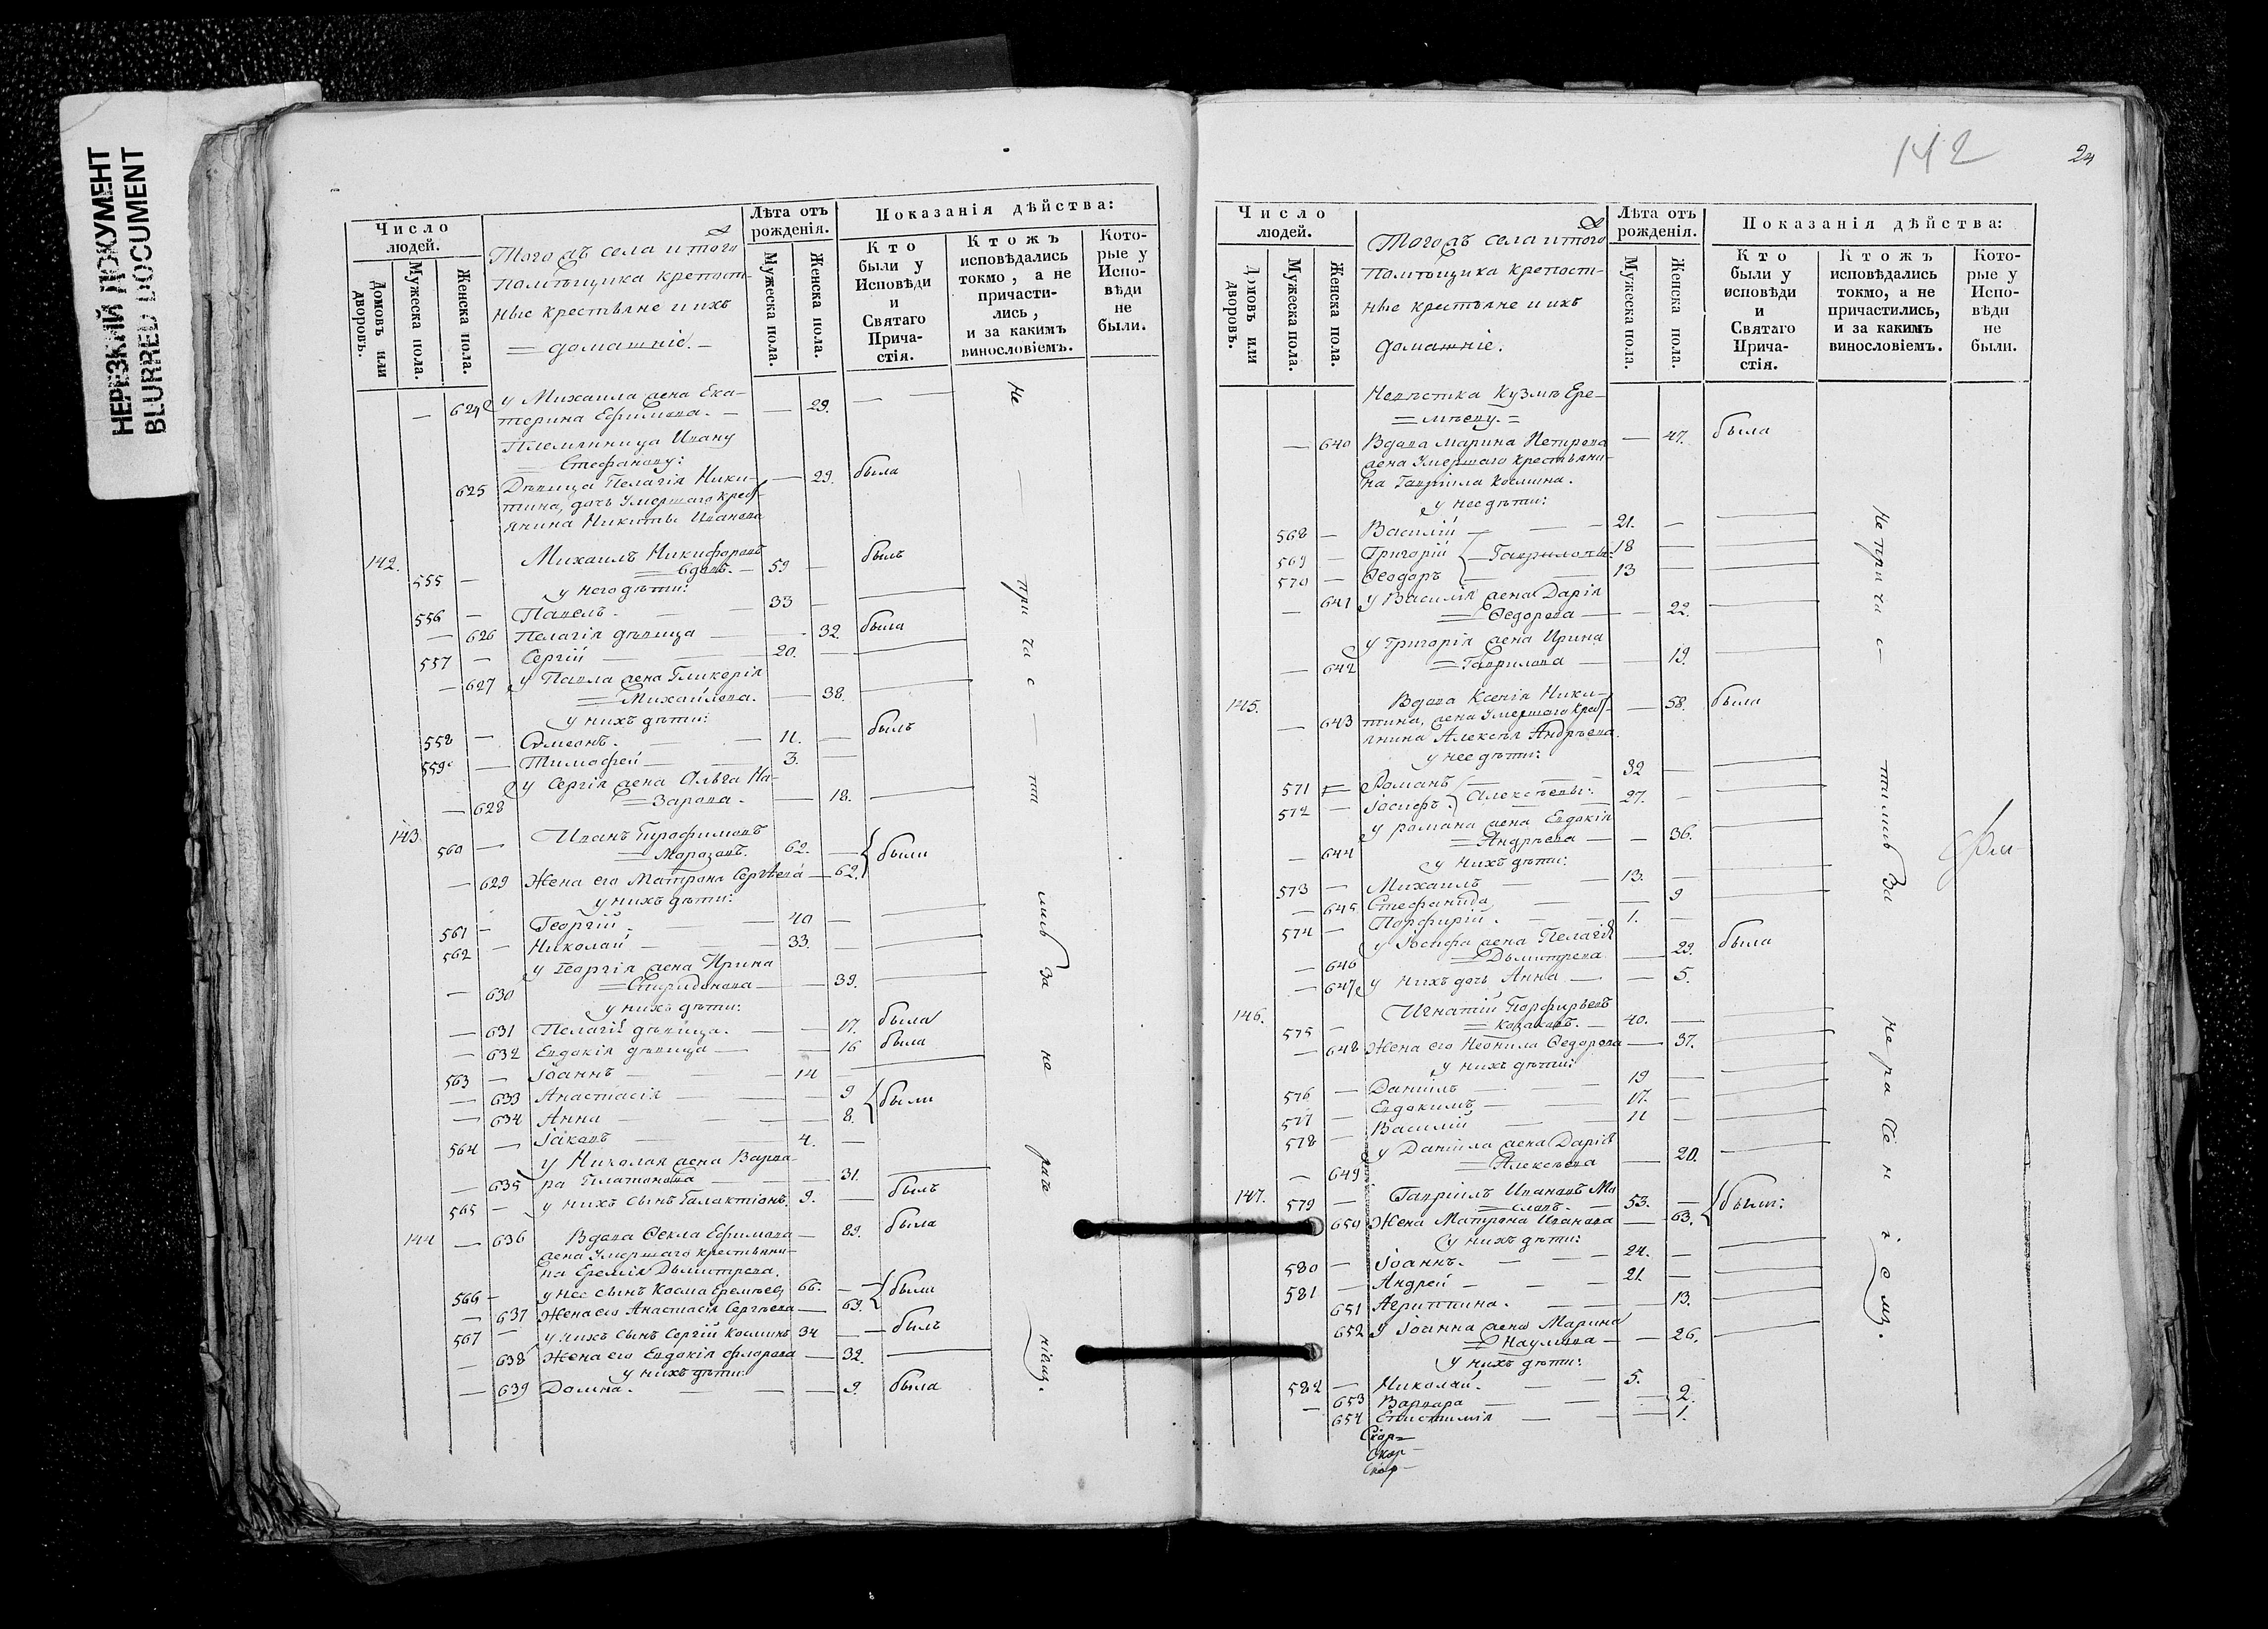 НЕРЕЗКИЙ ДОКУМЕНТ
BLURRED DOCUMENT
Число людей.
Домовъ или дворовъ.
Мужеска пола.
Женска пола.
Тогожъ села и того
помѣщика крепост-
ные крестьяне и ихъ
домашніе.
Лѣта отъ рожденія.
Мужеска пола.
Женска пола.
Показанія дѣйства:
Кто были у Исповѣди и Святаго Причастія.
Ктожъ исповѣдались токмо, а не причастились, и за какимъ винословіемъ.
Которые у Исповѣди не были.
— 624 у Михаила жена Ека-
терина Ефимова. — — 29. —
Племянница Ивану
Стефанову:
625 Дѣвица Пелагія Ники- — 29. была
тина, дочь умершаго крест-
янина Никиты Иванова
142. Михаилъ Никифоровъ был
555 — вдовъ. — 59 —
у него дѣти:
556 — Павелъ. — 33 —
— 626 Пелагія дѣвица — — 32 была
557 — Сергій — 20. —
— 627 у Павла жена Гликерія
Михайлова. — 38. —
у нихъ дѣти:
558 — Симеонъ. — 11. — былъ
559 — Тимофей — 3. —
у Сергія жена Ольга На-
— 628 зарова. — 18. —
143. Иванъ Трофимовъ
560 — Морозовъ. 62. — были
— 629 Жена его Матрона Сергѣева — 62.
у нихъ дѣти:
561 — Георгій — 40 —
562 — Николай — 33. —
у Георгія жена Ирина
— 630 Спиридонова — — 39. —
у нихъ дѣти:
— 631 Пелагія дѣвица. — — 17. была
— 632 Евдокія дѣвица — — 16 была
563 — Іоаннъ — 14 —
— 633 Анастасія — — 9 были
— 634 Анна — — 8.
564 — Іаковъ — 4. —
у Николая жена Варва-
— 635 ра Платонова — 31. —
565 — у нихъ сынъ Галактіонъ. 9. — былъ
144 — 636 Вдова Ѳекла Ефимова — 89. была
жена умершаго крестьяни-
на Еремія Дымитрева.
566 — у нее сынъ Косма Еремѣевъ 66. — были
— 637 Жена его Анастасія Сергѣева — 63.
567 — у нихъ сынъ Сергій Косминъ 34 — былъ
— 638 Жена его Евдокія Флорова — 32. —
у нихъ дѣти:
— 639 Домна. — — 9. была
Не причастились за нераченіемъ.
142
24
Число людей.
Домовъ или дворовъ.
Мужеска пола.
Женска пола.
Тогожъ села и того
помѣщика крепост-
ные крестьяне и ихъ
домашніе.
Лѣта отъ рожденія.
Мужеска пола.
Женска пола.
Показанія дѣйства:
Кто были у исповѣди и Святаго Причастія.
Ктожъ исповѣдались токмо, а не причастились, и за какимъ винословіемъ.
Которые у Исповѣди не были.
Невѣстка Кузмѣ Ере-
мѣеву.
— 640 Вдова Марина Петрова — 47. была
жена умершаго крестьяни-
на Гавріила Космина.
у нее дѣти:
568 — Василій — 21. —
569 — Григорій Гавриловы: 18 —
570 — Ѳеодоръ — 13 —
— 641 у Василія жена Дарія
Ѳедорова — — 22. —
у Григорія жена Ирина
— 642 Гаврилова — — 19. —
145. Вдова Ксенія Ники-
— 643 тина, жена умершаго крест- — 58. была
янина Алексѣя Андрѣева.
у нее дѣти:
571 — Романъ Алексѣевы: 32 —
572 — Іосифъ. 27. —
у Романа жена Евдокія
— 644 Андрѣева — — 36. —
у нихъ дѣти:
573 — Михаилъ — 13. —
— 645 Стефанида — — 9 —
574 — Порфирій. — 1. —
у Іосифа жена Пелагія
— 646 Дымитрева — 29. была
— 647 у нихъ дочь Анна — — 5.
146. Игнатій Порфирьевъ
575 — Казаковъ. — 40. —
— 648 Жена его Неонила Ѳедорова — 37. —
у нихъ дѣти:
576 — Даніилъ — 19 —
577 — Евдокимъ — 17. —
578 — Василій — 11 —
у Даніила жена Дарія
— 649 Алексѣева — 20. —
147. 579 — Гавріилъ Ивановъ Ма- 53. — были:
словъ. —
650 Жена Матрона Иванова — 63.
у нихъ дѣти:
580 — Іоаннъ. — 24. —
581 — Андрей — 21 —
651 Агриппина. — — 13. —
652 у Іоанна жена Марина
Наумова — — 26. —
у нихъ дѣти:
582 — Николай. — 5.
— 653 Варвара — — 2.
654 Епистимія — — 1.
Скор-
Скор-
Скор-
Не причастились за нераченіемъ.